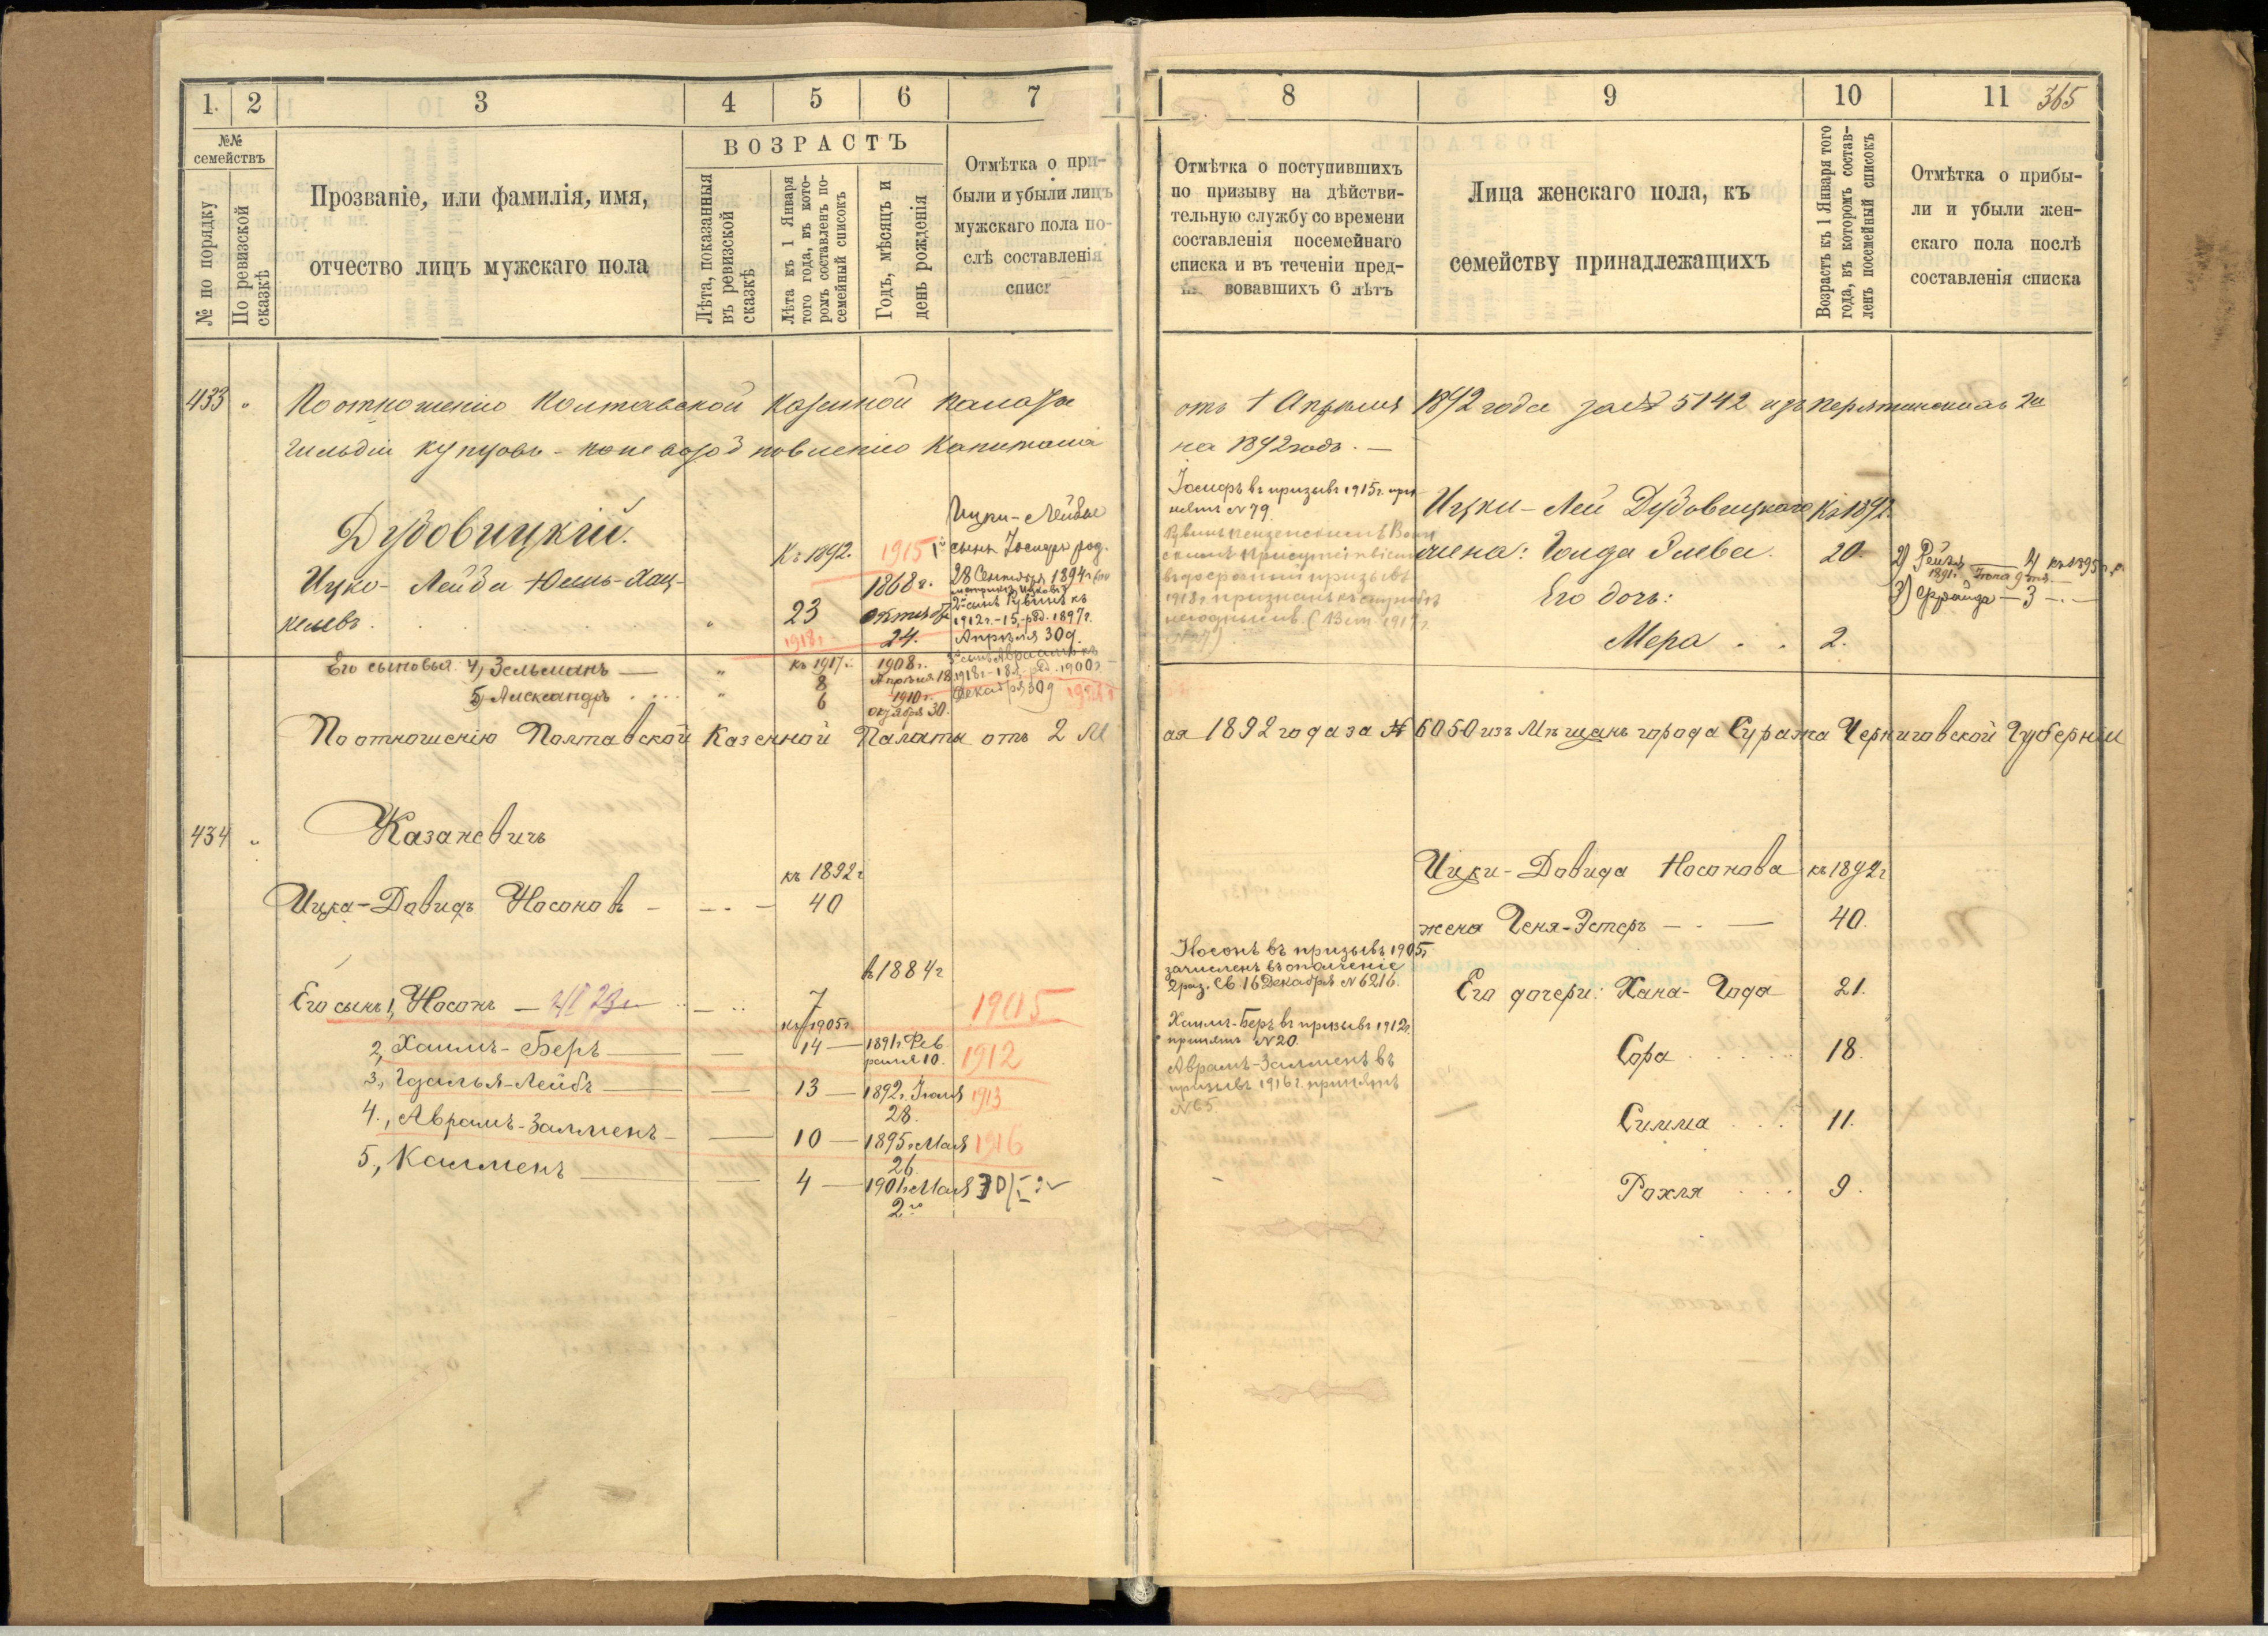 1. 2 3 4 5 6 7
№№ семействъ
№ по порядку
По ревизской сказкѣ
Прозваніе, или фамилія, имя,
отчество лицъ мужскаго пола
ВОЗРАСТЪ
Лѣта, показанныя
въ ревизской
сказкѣ
Лѣта къ 1 Января
того года, въ кото-
ромъ составленъ по-
семейный списокъ
Годъ, мѣсяцъ и
день рожденія
Отмѣтка о при-
были и убыли лицъ
мужскаго пола по-
слѣ составленія
списк
433 " По отношенію Полтавской Казенной Палаты
гильдіи купцовъ
Дубовицкій.
Ицко-Лейба Юдель-Хац-
келевъ.
Къ 1892.
23
1918г.
1915
1868г.
Октября
24.
Ицки-Лейбы
1й сынъ Іосифъ род.
28 Сентября 1894г.
2й сынъ Рувинъ къ
1912г.-15, род. 1897г.
Апрѣля 30д.
3й сынъ Авраамъ къ
1918г.-18л. род. 1900г.
Декабря 30д
Его сыновья: 4, Зельманъ — " къ 1917г. 8 1908г. Апрѣля 18
5, Александръ . . . " 6 1910г. Октября 30.
По отношенію Полтавской Казенной Палаты отъ 2 М
434 " Казаневичъ
къ 1892г
Ицка-Довидъ Носоновъ - — 40
въ 1884г
Его сынъ 1, Носонъ — 7 1905
къ 1905г.
2, Хаимъ-Беръ — 14 — 1891г. Фев-
раля 10. 1912
3, Гдалья-Лейбъ — 13 — 1892г. Іюля
28. 1913
4., Аврамъ-Залменъ — 10 — 1895г. Мая
26. 1916
5, Калменъ — 4 — 1901г. Мая
2го
8 9 10 11 365
Отмѣтка о поступившихъ
по призыву на дѣйстви-
тельную службу со времени
составленія посемейнаго
списка и въ теченіи пред-
вовавшихъ 6 лѣтъ
Лица женскаго пола, къ
семейству принадлежащихъ
Возрастъ къ 1 Января того
года, въ которомъ состав-
ленъ посемейный списокъ
Отмѣтка о прибы-
ли и убыли жен-
скаго пола послѣ
составленія списка
отъ 1 Апрѣля 1892 года за № 5142 изъ Пирятинскихъ 2й
на 1892 годъ. —
Іосифъ въ призывъ 1915г. при-
нятъ № 79.
Ицки-Лей Дубовицкаго Къ 1892.
жена: Голда 20.
Его дочь:
Мера . . 2.
2) Рейзя — 4 къ 1895г.
3) Фрейда — 3 —
ая 1892 года за № 6050 изъ Мѣщанъ города Суража Черниговской Губерніи
Ицки-Довида Носонова къ 1892г
жена Геня-Эстеръ — 40.
Носонъ въ призывъ 1905г
зачисленъ въ ополченіе
2 раз. Св. 16 Декабря № 6216.
Его дочери: Хана-Года 21.
Хаимъ-Беръ въ призывъ 1912г.
принятъ № 20.
Аврамъ-Залменъ въ
призывъ 1916г. принятъ
№ 65
Сора . . . . 18.
Симма . . . 11.
Рохля . . . 9.